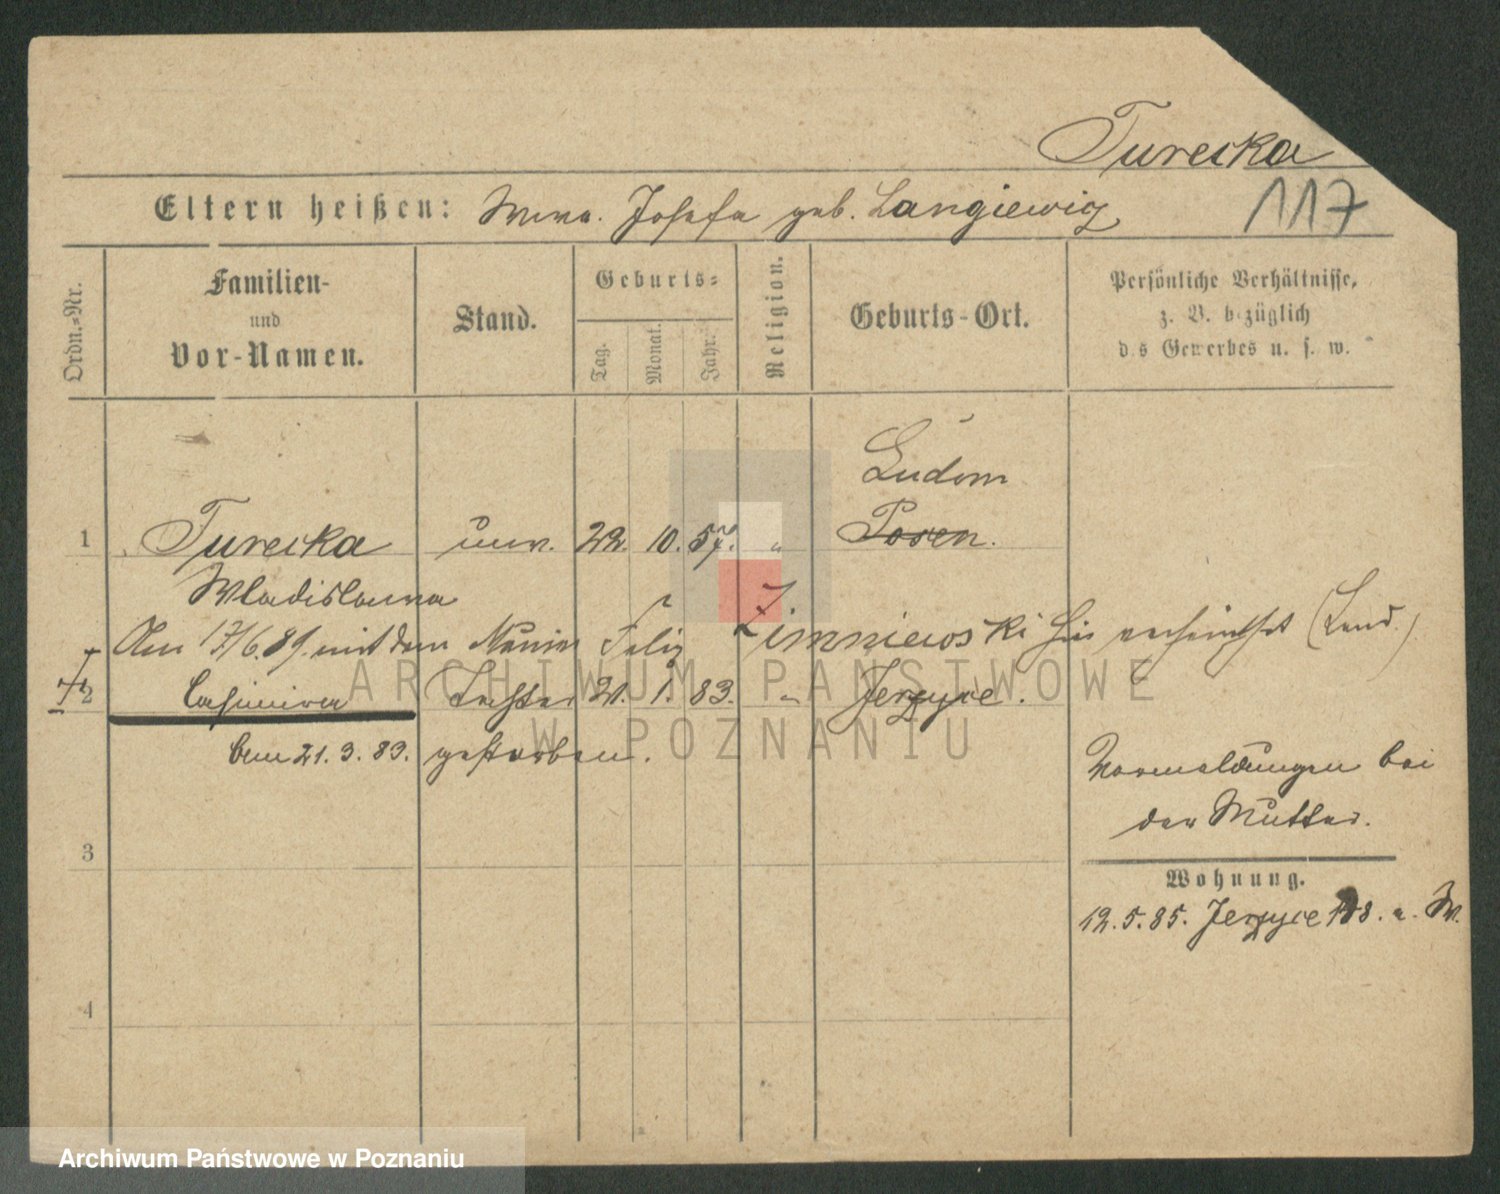 Turecka
117
Eltern heißen: Wwe. Josefa geb. Langiewicz
Ordn.-Nr.
Familien-
und
Vor-Namen.
Stand.
Geburts-
Tag.
Monat.
Jahr.
Religion.
Geburts-Ort.
Persönliche Verhältnisse,
z. B. bezüglich
des Gewerbes u. s. w.
Ludom
1 Turecka unv. 22. 10. 57. " Posen.
Wladislawa
Am 17/6.89. mit dem Felix Zimniewski hier verheirathet (Land.)
† 2 Casimira Tochter 21. 1. 83. " Jerzyce.
am 21. 3. 83. gestorben.
Vormeldungen bei
der Mutter.
3
Wohnung.
12. 5. 85. Jerzyce
4
ARCHIWUM PAŃSTWOWE
W POZNANIU
Archiwum Państwowe w Poznaniu